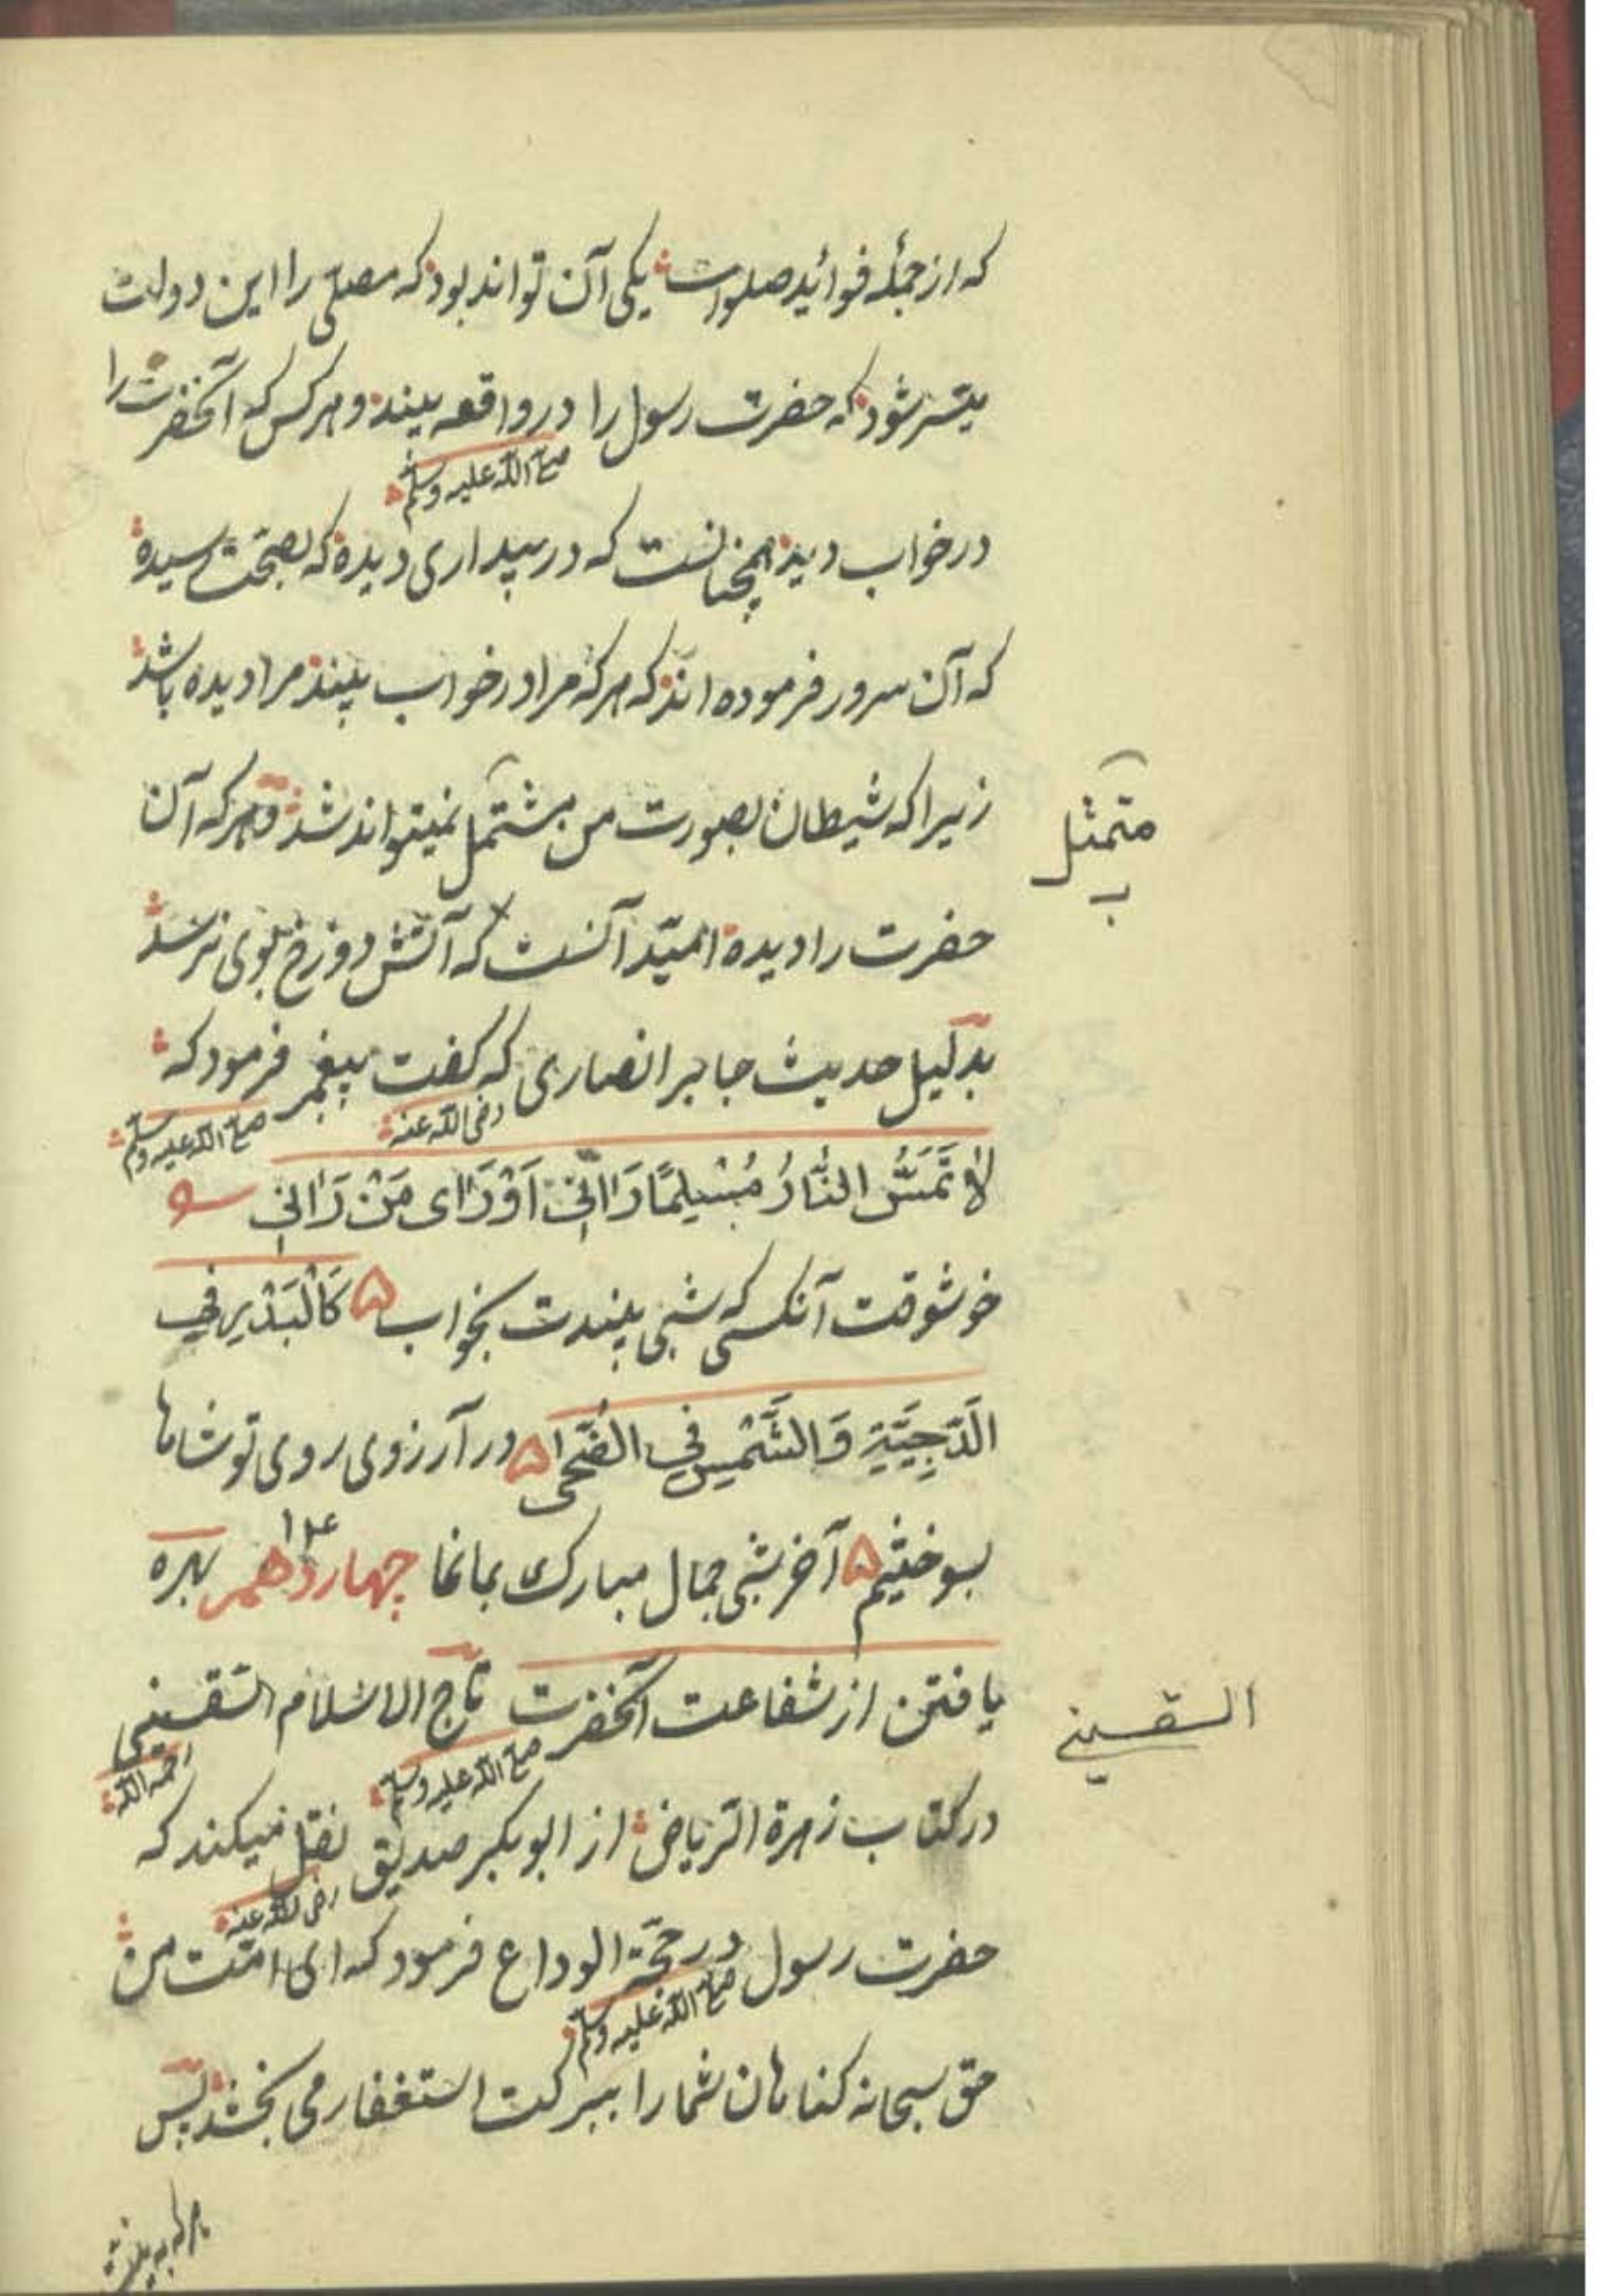 که از جملهٔ فوائد صلوات یکی آن تواند بود که مصلّی را این دولت
میسّر شود که حضرت رسول را در واقعه بیند و هر کس که آنحضرت را
صلی الله علیه وسلم
در خواب دید همچنانست که در بیداری دیده که بصحّت رسیده
که آن سرور فرموده اند که هر که مرا در خواب بیند مرا دیده باشد
زیرا که شیطان بصورت من مشتمل نمیتواند شد و هر که آن
متمثل
حضرت را دیده امیّد آنست که آتش دوزخ بوی نرسد
بدلیل حدیث جابر انصاری که گفت پیغمبر فرمود که
رضی الله عنه صلی الله علیه وسلم
لَا تَمَسُّ النَّارُ مُسْلِمًا رَاٰنِي اَوْ رَاٰی مَنْ رَاٰنِي
خوشوقت آنکسی که شبی بیندت بخواب ۵ کَالْبَدْرِ فِي
الدُّجِيَّةِ وَالشَّمْسِ فِي الضُّحٰی ۵ در آرزوی روی تو شاها
بسوختیم ۵ آخر شبی جمال مبارک بما نما چهاردهم ۱۴ بهره
یافتن از شفاعت آنحضرت تاج الاسلام السّقسینی
صلی الله علیه وسلم رحمه الله
السقسینی
در کتاب زهرة الریاض از ابوبکر صدیق نقل میکند که
رضی الله عنه
حضرت رسول در حجّة الوداع فرمود که ای امّت من
صلی الله علیه وسلم
حق سبحانه کناهان شمارا ببرکت استغفار می بخشد پس